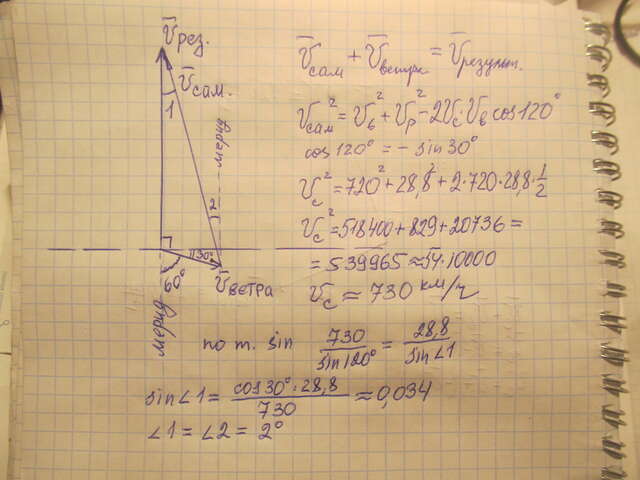 V̄рез.
V̄сам.
1
мерид
2
30°
60°
V̄ветра
мерид
V̄сам + V̄ветра = V̄результ.
Vсам² = Vв² + Vр² - 2Vс·Vв cos120°
cos120° = - sin30°
Vс² = 720² + 28,8² + 2·720·28,8·1/2
Vс² = 518400 + 829 + 20736 =
= 539965 ≈ 54·10000
Vс ≈ 730 км/г
по т. sin 730/sin120° = 28,8/sin∠1
sin∠1 = cos30°·28,8/730 ≈ 0,034
∠1 = ∠2 = 2°